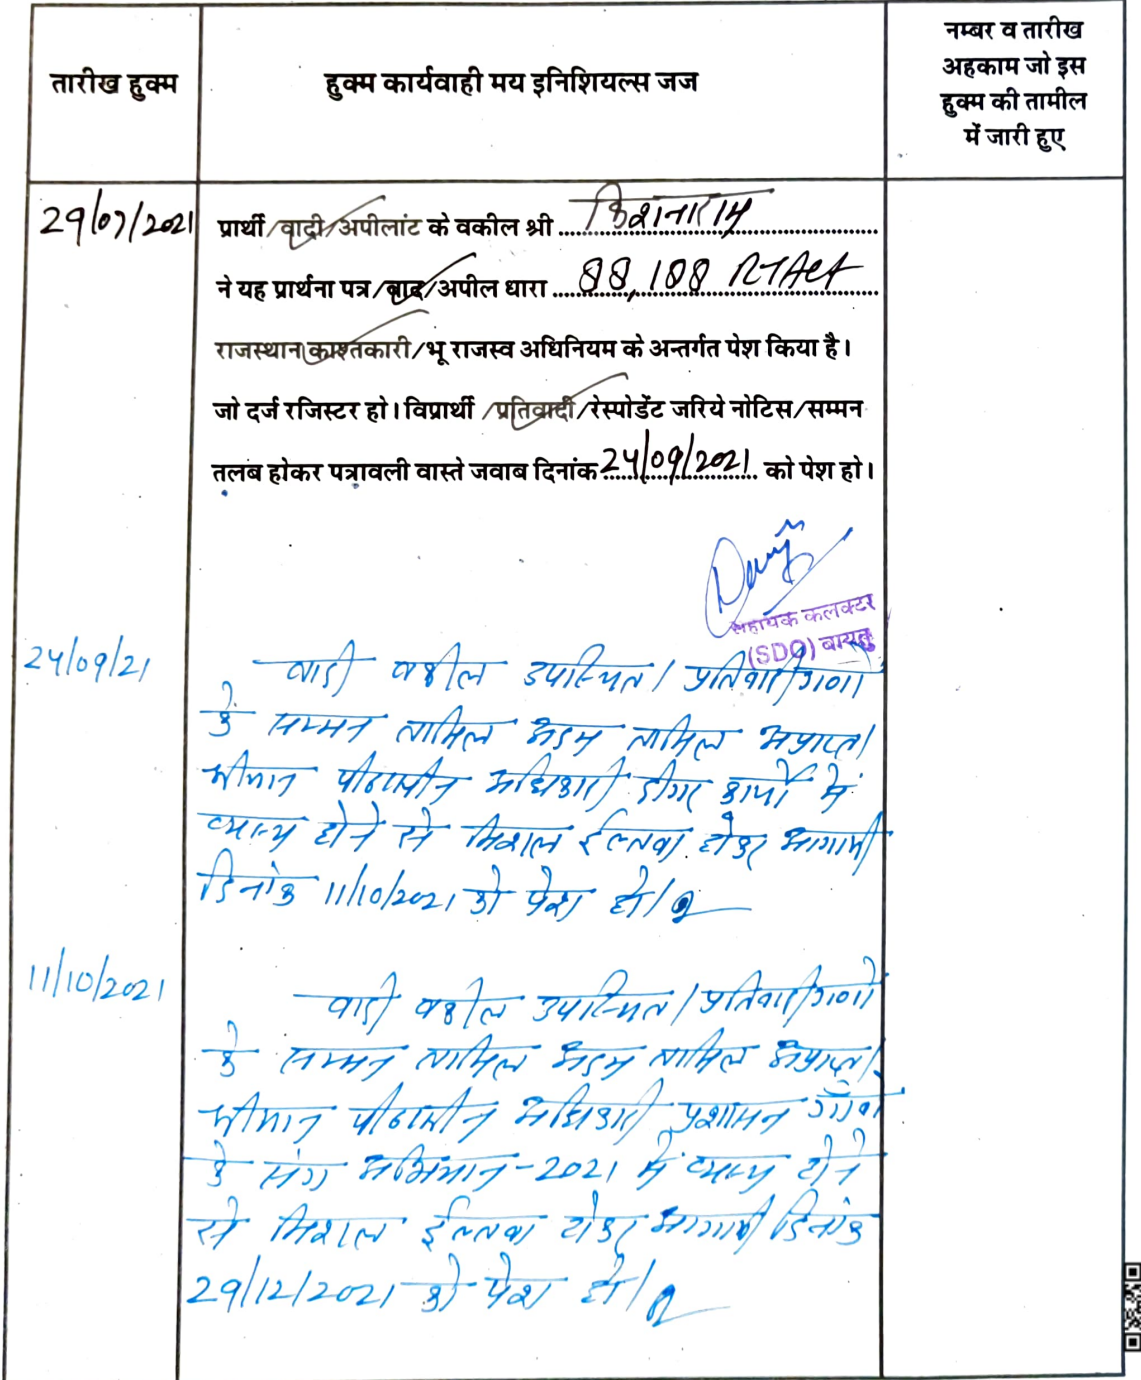 तारीख हुक्म
हुक्म कार्यवाही मय इनिशियल्स जज
नम्बर व तारीख
अहकाम जो इस
हुक्म की तामील
में जारी हुए
29/07/2021
प्रार्थी/वादी/अपीलांट के वकील श्री किशनाराम
ने यह प्रार्थना पत्र/वाद/अपील धारा 88,188 RTAct
राजस्थान काश्तकारी/भू राजस्व अधिनियम के अन्तर्गत पेश किया है।
जो दर्ज रजिस्टर हो। विप्रार्थी/प्रतिवादी/रेस्पोडेंट जरिये नोटिस/सम्मन
तलब होकर पत्रावली वास्ते जवाब दिनांक 24/09/2021 को पेश हो।
सहायक कलक्टर
(SDO) बायतु
24/09/21
वादी वकील उपस्थित। प्रतिवादीगणों
के सम्मन तामिल अदम तामिल अप्राप्त।
श्रीमान पीठासीन अधिकारी दीगर कार्यो में
व्यस्त होने से मिशल ईल्तवा होकर आगामी
दिनांक 11/10/2021 को पेश हो।
11/10/2021
वादी वकील उपस्थित। प्रतिवादीगणों
के सम्मन तामिल अदम तामिल अप्राप्त।
श्रीमान पीठासीन अधिकारी प्रशासन गाँवों
के संग अभियान-2021 में व्यस्त होने
से मिशल ईल्तवा होकर आगामी दिनांक
29/12/2021 को पेश हो।